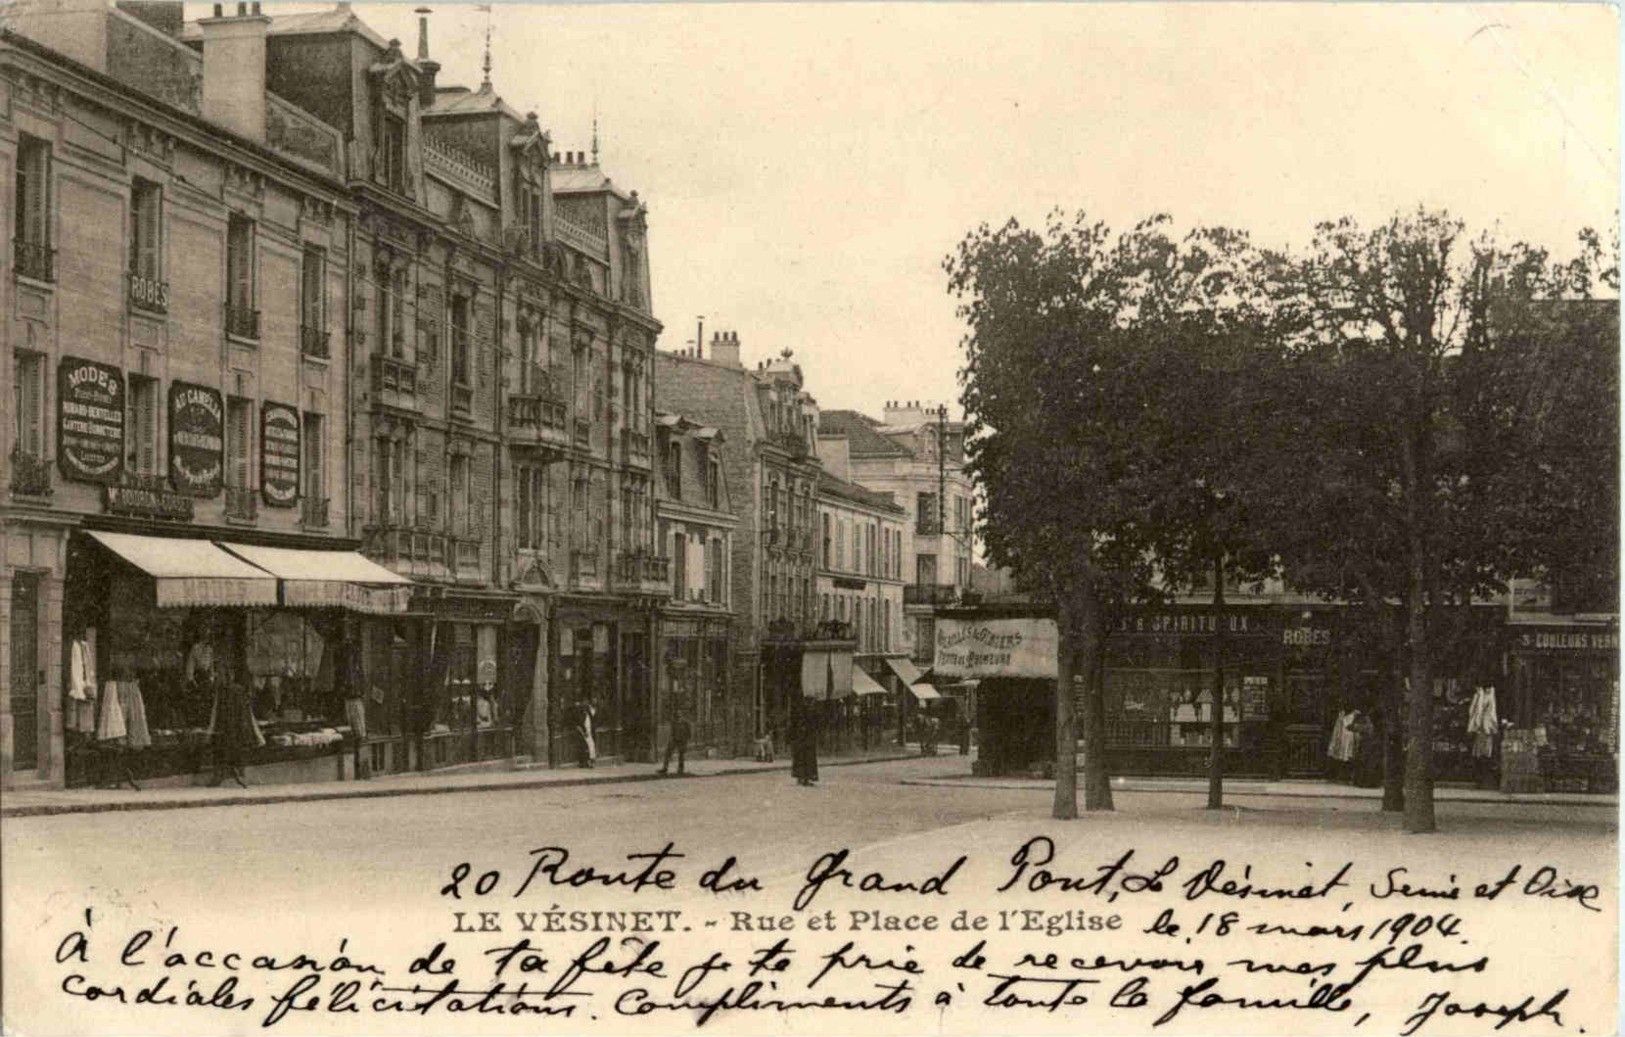 ROBES
MODES
AU CAMELIA
MODES
& SPIRITUEUX
ROBES
COULEURS VERN
20 Route du Grand Pont, Le Vésinet, Seine et Oise
LE VÉSINET. - Rue et Place de l'Eglise
le 18 mars 1904.
À l'occasion de ta fête je te prie de recevoir mes plus
cordiales félicitations. Compliments à toute la famille, Joseph.